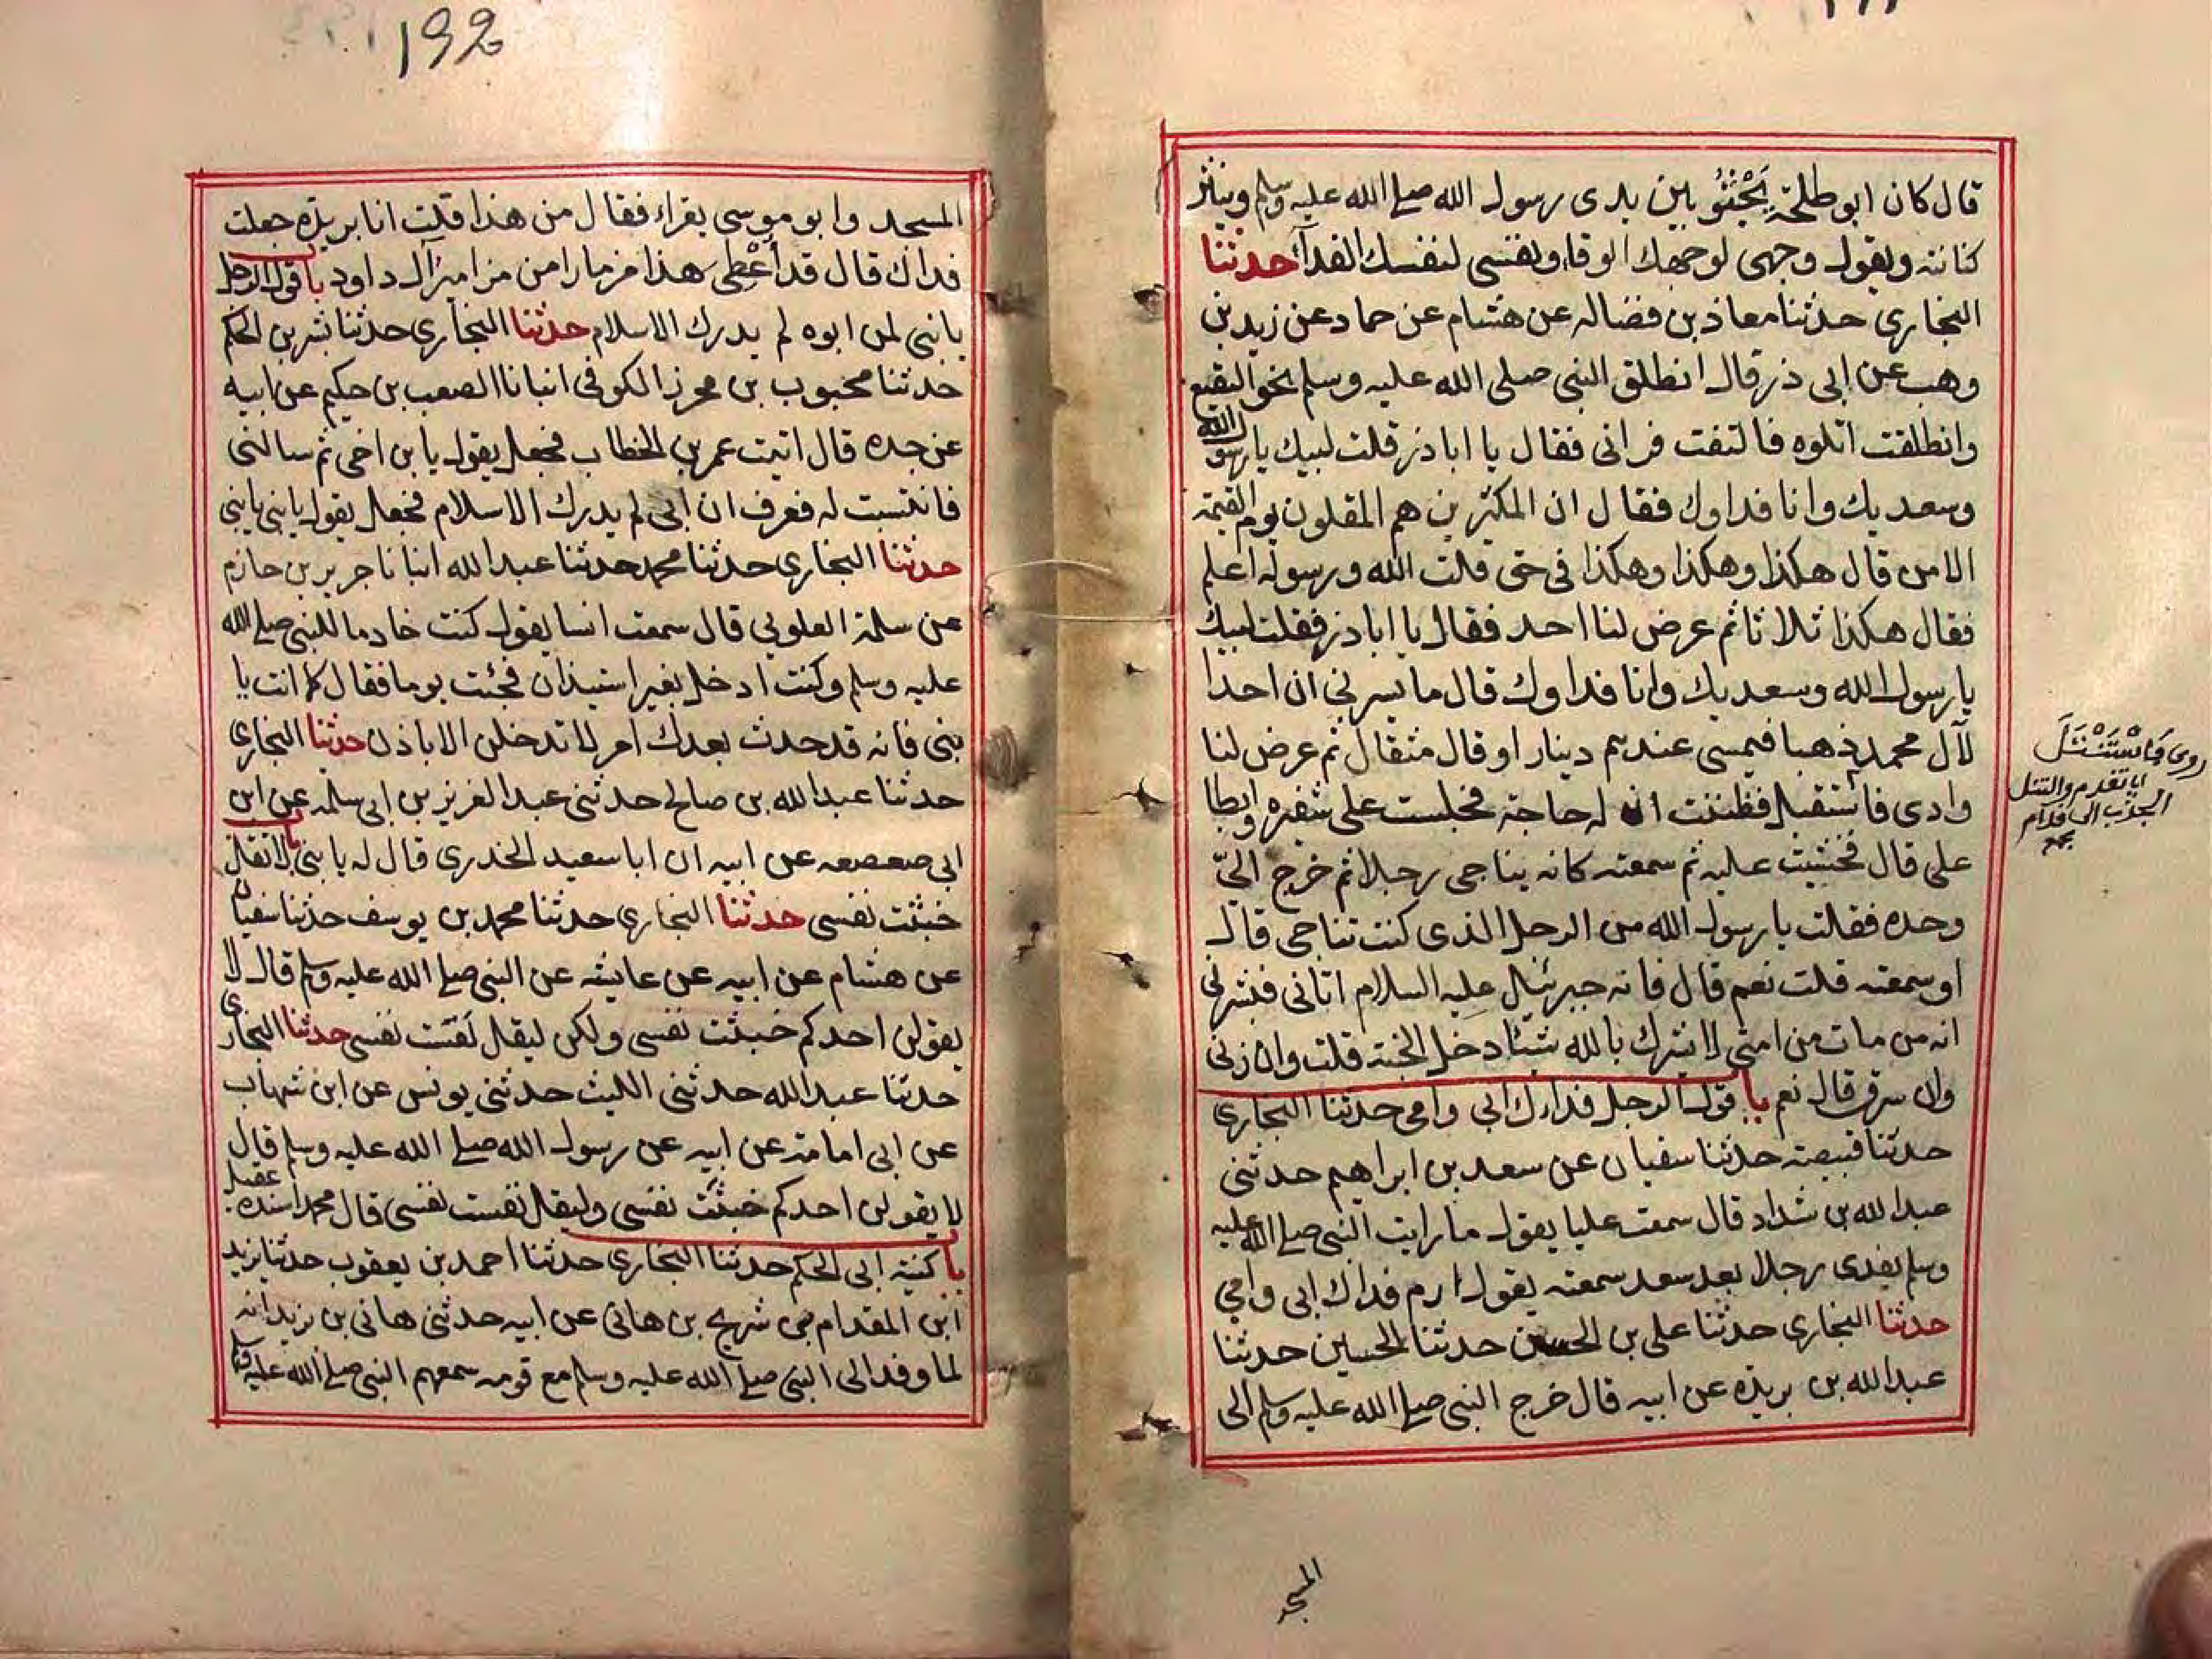 قال كان ابو طلحة يَجْثُوُ بين يدى رسول الله صلے الله عليه وسلم وينثر
كنانته ويقول وجهى لوجهك الوقا ونفسى لنفسك الفدآء حدثنا
البخارى حدثنا معاذ بن فضاله عن هشام عن حماد عن زيد بن
وهب عن ابى ذر قال انطلق النبى صلى الله عليه وسلم نحو البقيع
وانطلقت اتلوه فالتفت فرانى فقال يا ابا ذر قلت لبيك يا رسول الله
وسعديك وانا فداوك فقال ان المكثرين هم المقلون يوم القيمة
الا من قال هكذا وهكذا وهكذا فى حق قلت الله ورسوله اعلم
فقال هكذا ثلاثا ثم عرض لنا احد فقال يا ابا ذر فقلت لبيك
يا رسول الله وسعديك وانا فداوك قال ما يسرنى ان احدا
لآل محمد ذهبا فيمسى عندهم دينار او قال مثقال ثم عرض لنا
وادى فاستقبل فظننت ان له حاجة فجلست على شفيره وابطا
على قال فخشيت عليه ثم سمعته كانه يناجى رجلا ثم خرج الىّ
وحده فقلت يا رسول الله من الرجل الذى كنت تناجى قال
او سمعته قلت نعم قال فانه جبرئيل عليه السلام اتانى فبشرنى
انه من مات من امتى لا يشرك بالله شيئا دخل الجنة قلت وان زنى
وان سرق قال نعم باب قول الرجل فداك ابى وامى حدثنا البخارى
حدثنا قبيصة حدثنا سفيان عن سعد بن ابراهيم حدثنى
عبد الله بن شداد قال سمعت عليا يقول ما رايت النبى صلے الله عليه
وسلم يفدى رجلا بعد سعد سمعته يقول ارم فداك ابى وامى
حدثنا البخارى حدثنا على بن الحسن حدثنا الحسين حدثنا
عبد الله بن بريدة عن ابيه قال خرج النبى صلے الله عليه وسلم الى
روى فَاسْتَنْتَلَ
اى تقدم والنتل
الجذب الى قدام
مجمع
المسجد
192
المسجد وابو موسى يقراء فقال من هذا قلت انا بريدة جعلت
فداك قال قد أُعْطِى هذا مزمارا من مزامير آل داود باب قول الرجل
يا بنى لمن ابوه لم يدرك الاسلام حدثنا البخارى حدثنا بشر بن الحكم
حدثنا محبوب بن محرز الكوفى انبانا الصعب بن حكيم عن ابيه
عن جده قال اتيت عمر بن الخطاب فجعل يقول يا بن اخى ثم سالنى
فانتسبت له فعرف ان ابى لم يدرك الاسلام فجعل يقول يا بنى يا بنى
حدثنا البخارى حدثنا محمد حدثنا عبد الله انبانا جرير بن حازم
عن سلمة العلوى قال سمعت انسا يقول كنت خادما للنبى صلے الله
عليه وسلم وكنت ادخل بغير استيذان فجئت يوما فقال كما انت يا
بنى فانه قد حدث بعدك امر لا تدخلن الا باذن حدثنا البخارى
حدثنا عبد الله بن صالح حدثنى عبد العزيز بن ابى سلمه عن ابن
ابى صعصعه عن ابيه ان ابا سعيد الخدرى قال له يا بنى باب لا تقل
خبثت نفسى حدثنا البخارى حدثنا محمد بن يوسف حدثنا سفيان
عن هشام عن ابيه عن عايشه عن النبى صلے الله عليه وسلم قال لا
يقولن احدكم خبثت نفسى ولكن ليقل لَقَسَت نفسى حدثنا البخارى
حدثنا عبد الله حدثنى الليث حدثنى يونس عن ابن شهاب
عن ابى امامة عن ابيه عن رسول الله صلے الله عليه وسلم قال
لا يقولن احدكم خبثت نفسى وليقل لقست نفسى قال محمد اسنده عقيل
باب كنية ابى الحكم حدثنا البخارى حدثنا احمد بن يعقوب حدثنا يزيد
ابن المقدام بن شريح بن هانى عن ابيه حدثنى هانى بن يزيد انه
لما وفد الى النبى صلے الله عليه وسلم مع قومه سمعهم النبى صلے الله عليه وسلم